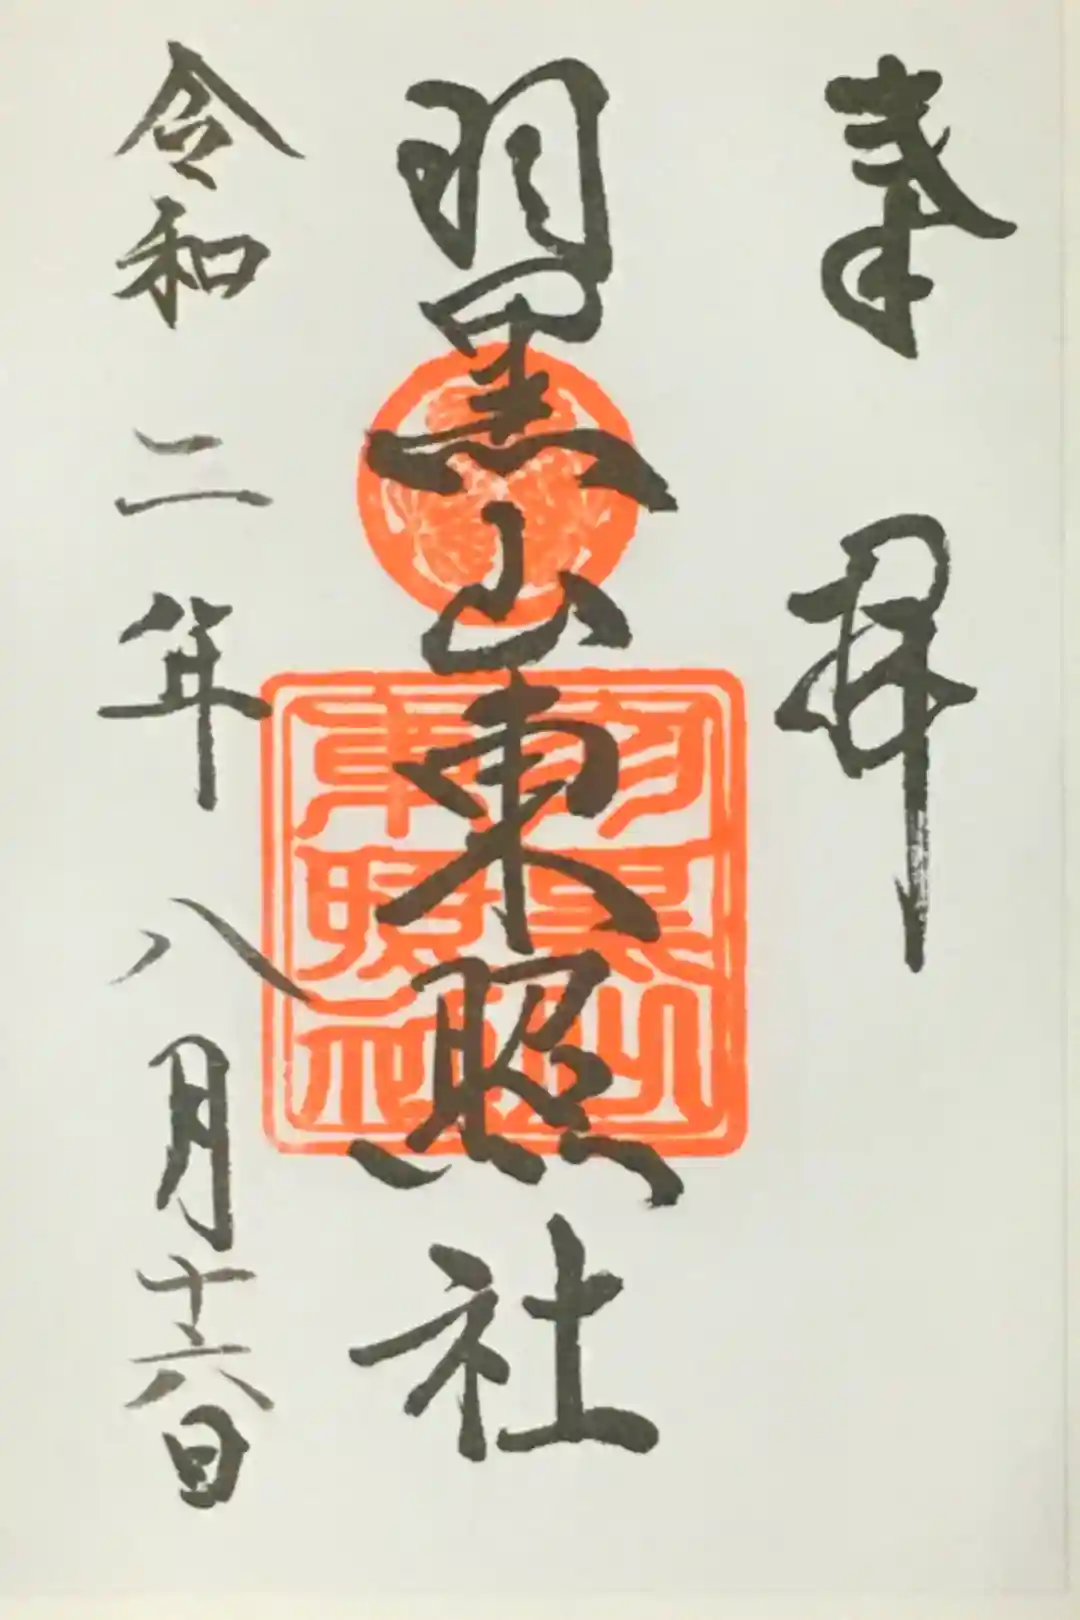 奉拝
羽黒山東照社
羽黒山
東照社
令和二年八月十六日